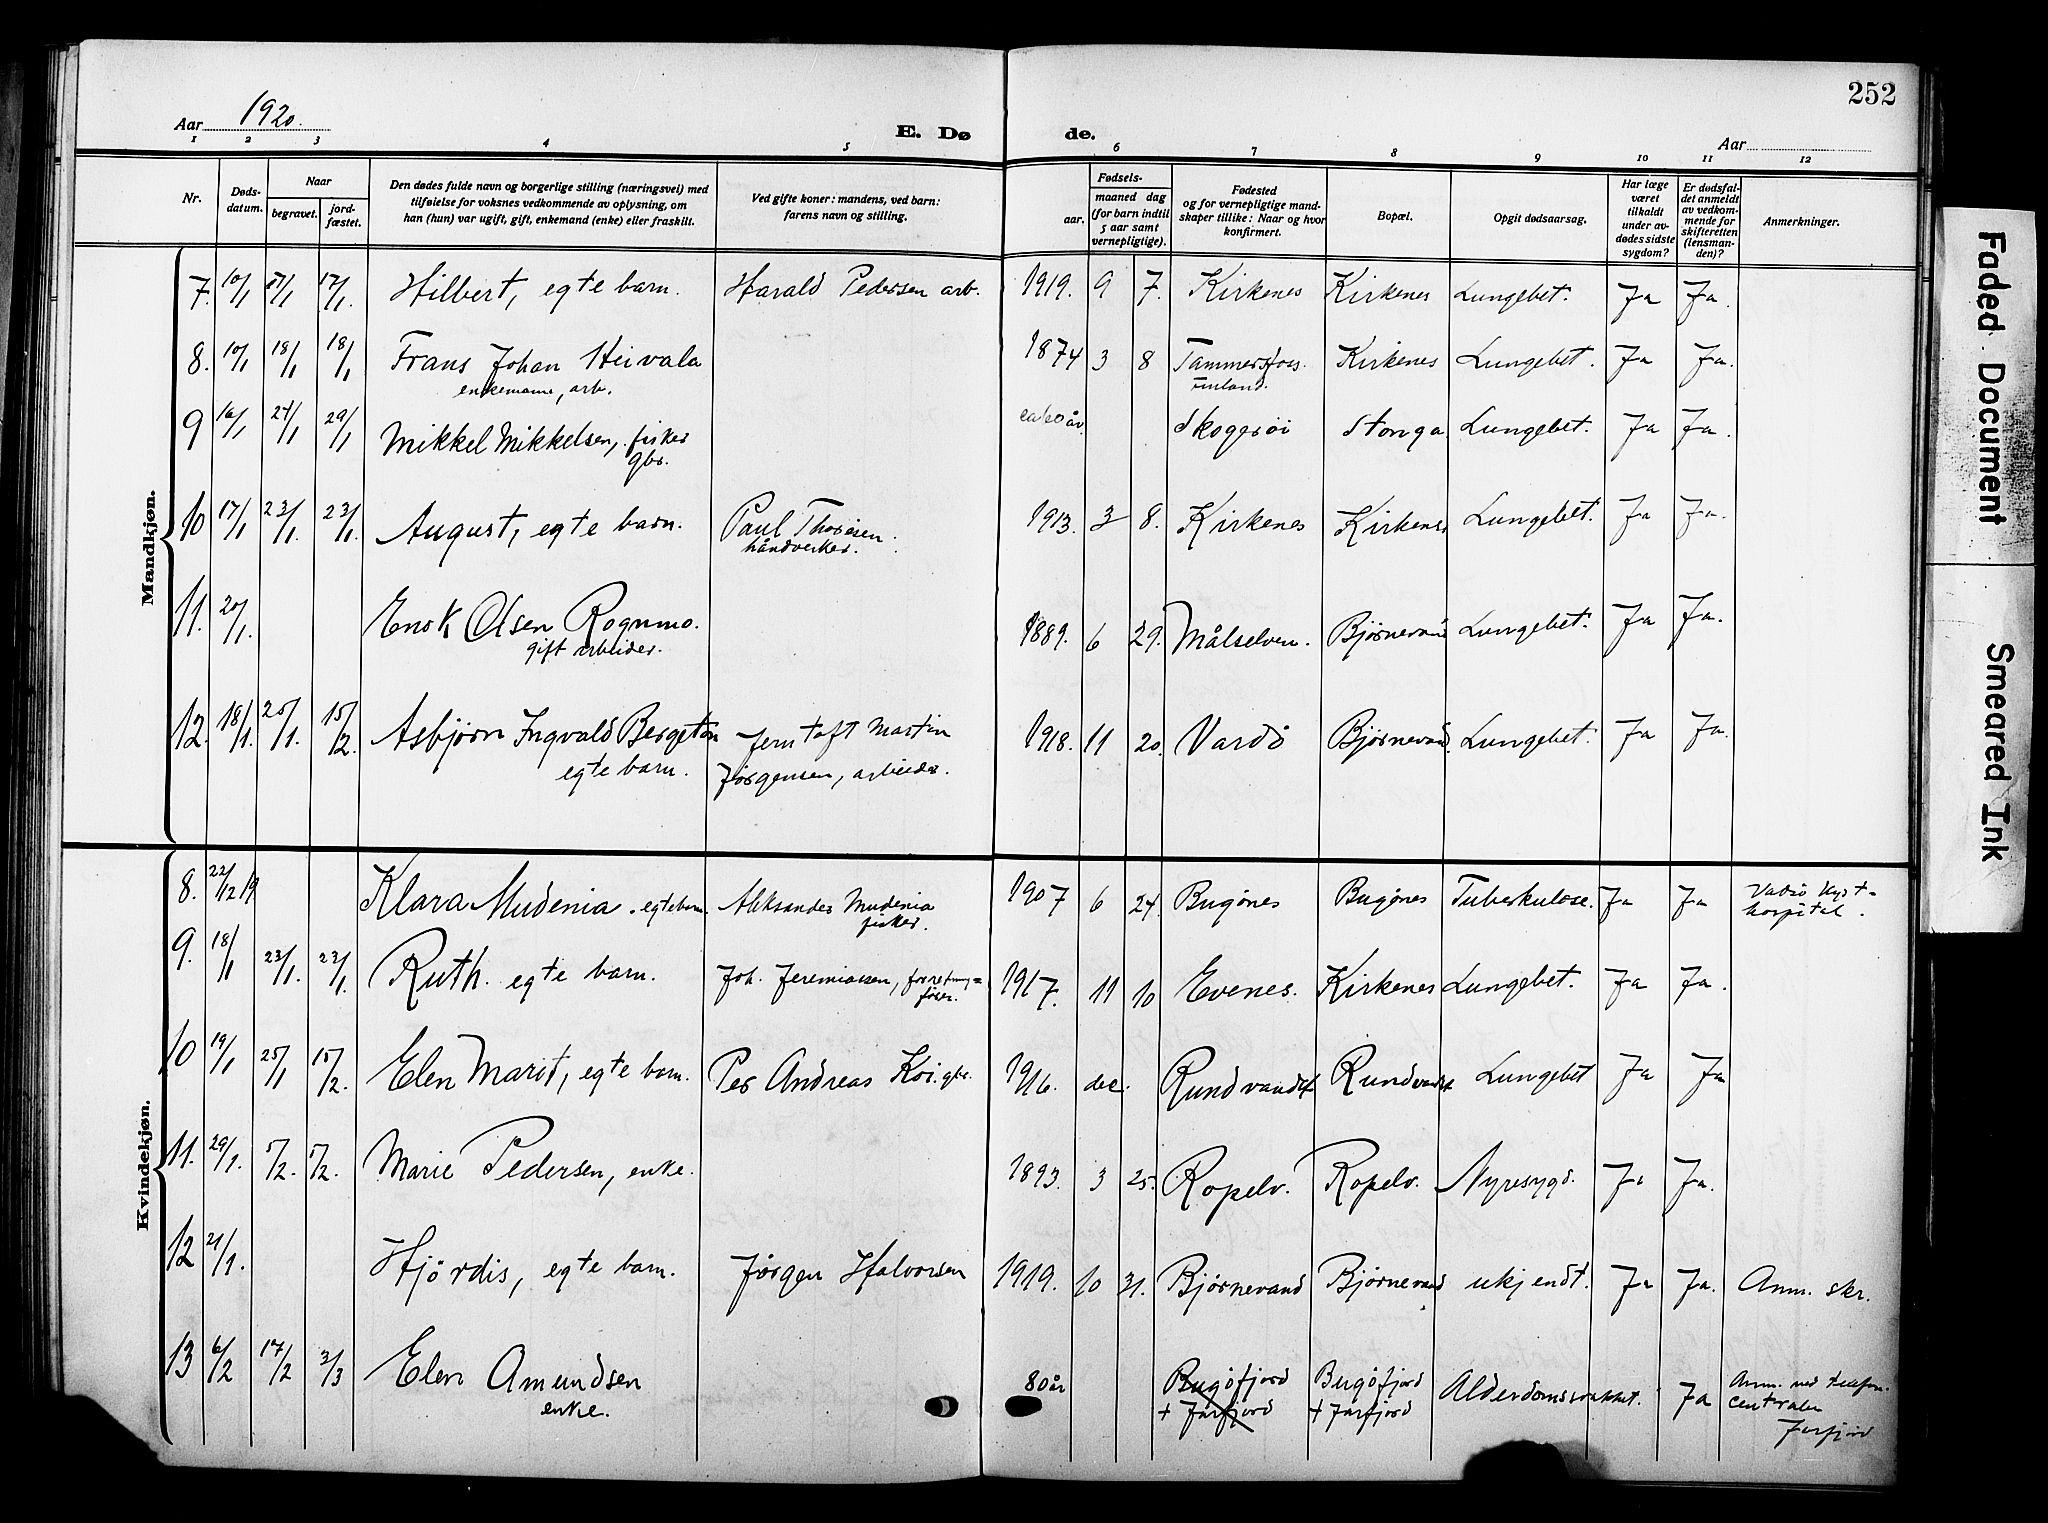 252
Aar 1920.
E. Dø
de.
Aar
1 2 3 4 5 6 7 8 9 10 11 12
Nr.
Døds-
datum.
Naar
begravet.
jord-
fæstet.
Den dødes fulde navn og borgerlige stilling (næringsvei) med
tilføielse for voksnes vedkommende av oplysning, om
han (hun) var ugift, gift, enkemand (enke) eller fraskilt.
Ved gifte koner: mandens, ved barn:
farens navn og stilling.
Fødsels-
aar.
maaned dag
(for barn indtil
5 aar samt
vernepligtige).
Fødested
og for vernepligtige mand-
skaper tillike: Naar og hvor
konfirmert.
Bopæl.
Opgit dødsaarsag.
Har læge
været
tilkaldt
under av-
dødes sidste
sygdom?
Er dødsfal-
det anmeldt
av vedkom-
mende for
skifteretten
(lensman-
den)?
Anmerkninger.
Mandkjøn.
7. 10/1 17/1 17/1. Hilbert, egte barn. Harald Pedersen arb. 1919. 9 7. Kirkenes Kirkenes Lungebet. Ja Ja.
8. 10/1 18/1 18/1 Frans Johan Hiivala 1874 3 8 Tammersfors. Kirkenes Lungebet. Ja Ja.
enkemann, arb. Finland.
9 16/1 24/1 29/1 Mikkel Mikkelsen, fisker ca 60 år. Skogerøi Stonga Lungebet. Ja Ja.
gbr.
10 17/1 23/1. 23/1. August, egte barn. Paul Thoresen. 1913. 3 8. Kirkenes Kirkenes Lungebet. Ja Ja.
håndverker.
11. 20/1. Enok Olsen Rognmo. 1889. 6 29. Målselven. Bjørnevand Lungebet. Ja Ja.
gift arbeider.
12. 18/1. 25/1. 15/2. Asbjørn Ingvald Bergeton Jentoft Martin 1918. 11 20. Vardö Bjørnevand. Lungebet. Ja Ja.
egte barn. Jørgensen, arbeider.
Kvindekjøn.
8. 22/12 19 Klara Mudenia. egte barn. Aleksander Mudenia 1907 6 24. Bugönes Bugönes Tuberkulose. Ja Ja Vadsö Kyst-
fisker. hospital.
9. 18/1 23/1. 23/1. Ruth. egte barn. Joh. Jeremiassen, forretnings- 1917. 11 10 Evenes. Kirkenes Lungebet. Ja Ja.
fører.
10 19/1 25/1 15/2. Elen Marit, egte barn. Per Andreas Koi. gbr. 1916. dec. Rundvandet Rundvandet Lungebet Ja Ja
11. 29/1. 5/2. 5/2. Marie Pedersen, enke. 1893. 3 25. Ropelv. Ropelv. Nyresygd. Ja Ja.
12 21/1. Hjördis, egte barn. Jørgen Halvorsen 1919. 10 31. Bjørnevand Bjørnevand ukjendt. Ja Ja. Anm. skr.
13 6/2 17/2 3/3 Elen Amundsen 80 år Bugöfjord Bugöfjord Alderdomssvakhet. Ja Anm. ved telefon-
enke. + Jarfjord + Jarfjord centralen
Jarfjord
Faded Document
Smeared Ink